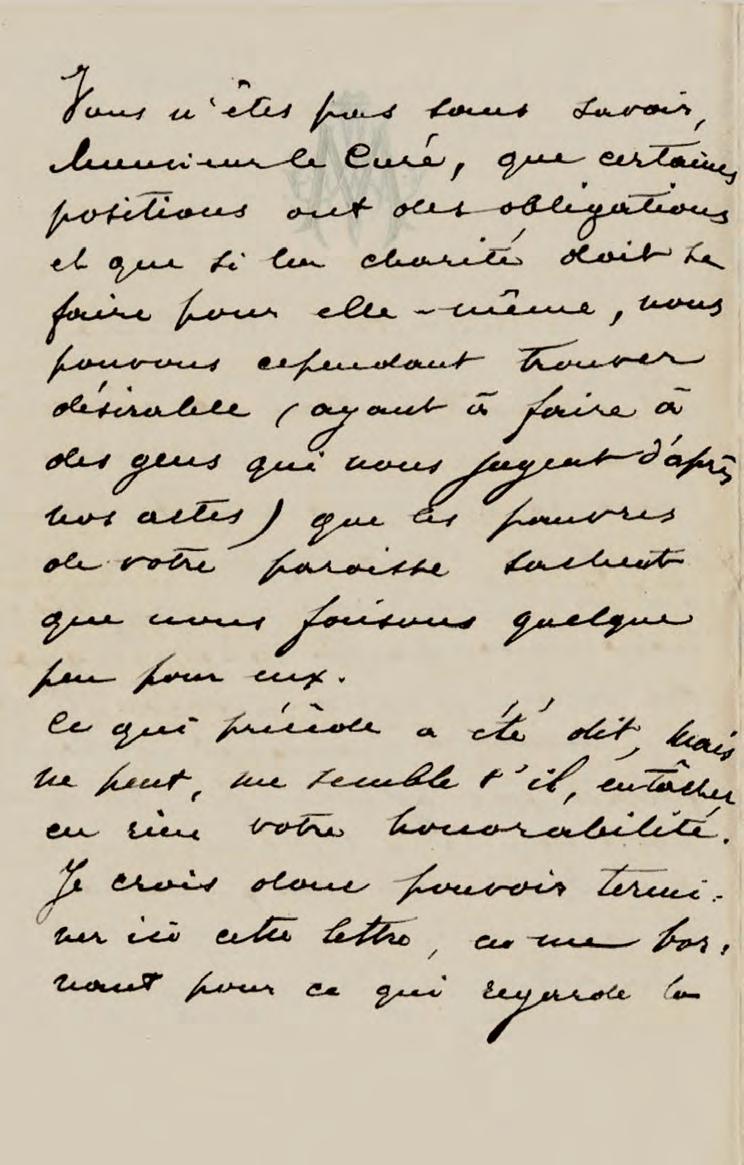 Vous n'êtes pas sans savoir,
Monsieur le Curé, que certaines
positions ont des obligations
et que si la charité doit se
faire pour elle-même, nous
pouvons cependant trouver
désirable (ayant à faire à
des gens qui nous jugent d'après
nos actes) que les pauvres
de votre paroisse sachent
que nous faisons quelque
peu pour eux.
Ce qui précède a été dit, mais
ne peut, me semble t'il, entâcher
en rien votre honorabilité.
Je crois donc pouvoir termi-
ner ici cette lettre, en me bor-
nant pour ce qui regarde la